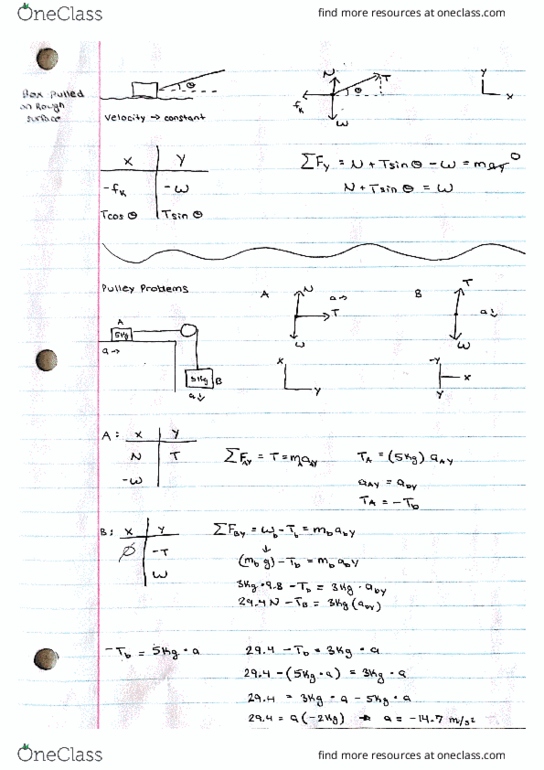 OneClass
find more resources at oneclass.com
Box Pulled
on Rough
Surface
θ
N
T
θ
fk
W
Y
X
Velocity → constant
X Y
-fk -W
Tcos θ Tsin θ
ΣFy = N + Tsin θ - W = may 0
N + Tsin θ = W
Pulley Problems
A
N
a→
T
W
B
T
a↓
W
A
5kg
a→
3kg B
a↓
X
Y
-Y
X
Y
A: X Y
N T
-W
ΣFAY = T = mAaAY
TA = (5kg) aAY
aAY = aBY
TA = -Tb
B: X Y
∅ -T
W
ΣFBY = Wb - Tb = mbabY
↓
(mbg) - Tb = mbabY
3kg • 9.8 - Tb = 3kg • abY
29.4 N - TB = 3kg (abY)
-Tb = 5kg • a
29.4 - Tb = 3kg • a
29.4 - (5kg • a) = 3kg • a
29.4 = 3kg • a - 5kg • a
29.4 = a(-2kg) → a = -14.7 m/s²
OneClass
find more resources at oneclass.com